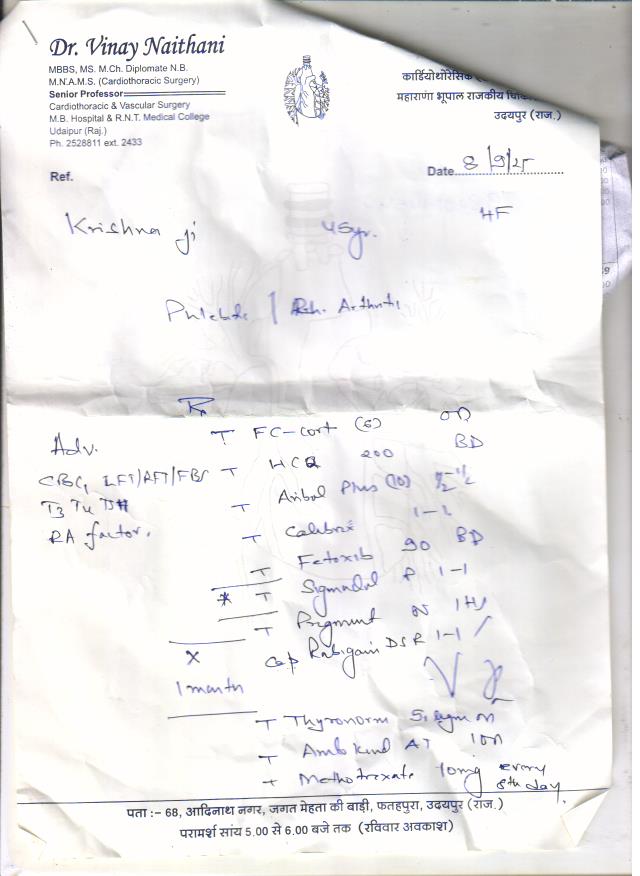 Dr. Vinay Naithani
MBBS, MS. M.Ch. Diplomate N.B.
M.N.A.M.S. (Cardiothoracic Surgery)
Senior Professor
Cardiothoracic & Vascular Surgery
M.B. Hospital & R.N.T. Medical College
Udaipur (Raj.)
Ph. 2528811 ext. 2433
कार्डियोथोरेसिक
महाराणा भूपाल राजकीय
उदयपुर (राज.)
Ref.
Date 8/9/25
Krishna ji 45yr.
Rh. Arthritis
Rx
Adv.
CBC, LFT/RFT/FBS
T3 T4 TSH
RA factor.
T FC-cort (6) OD
T HCQ 200 BD
T Plus (10) 1/2-1/2
T 1-1
T Fetoxib 90 BD
* T P 1-1
T N
Cap. Rabigain DSR 1-1
X
1 month
T Thyronorm
T Amlokind AT 1 OD
T Methotrexate 10mg every
8th day.
पता :– 68, आदिनाथ नगर, जगत मेहता की बाड़ी, फतहपुरा, उदयपुर (राज.)
परामर्श सांय 5.00 से 6.00 बजे तक (रविवार अवकाश)